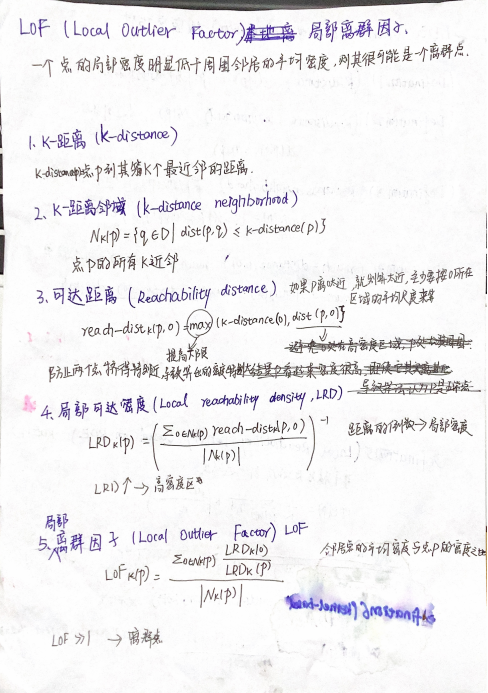 LOF (Local Outlier Factor) 局部离群因子
一个点的局部密度明显低于周围邻居的平均密度，则其很可能是一个离群点.
1. K-距离 (k-distance)
k-distance 点p到其第K个最近邻的距离.
2. K-距离邻域 (k-distance neighborhood)
Nk(p)={q∈D| dist(p,q) ≤ k-distance(p)}
点p的所有K近邻
3. 可达距离 (Reachability distance) 如果p离o太近，就别算太近，至少要按o所在
区域的平均尺度来算
reach-distk(p,o)=max{k-distance(o), dist(p,o)}
提高下限
防止两个点挨得特别近
4. 局部可达密度 (Local reachability density, LRD)
LRDk(p) = (Σo∈Nk(p) reach-distk(p,o) / |Nk(p)|)^-1 距离的倒数→局部密度
LRD↑→高密度区
5. 局部离群因子 (Local Outlier Factor) LOF
LOFk(p) = Σo∈Nk(p) LRDk(o)/LRDk(p) / |Nk(p)| 邻居点的平均密度与点p的密度之比
LOF ≫1 → 离群点